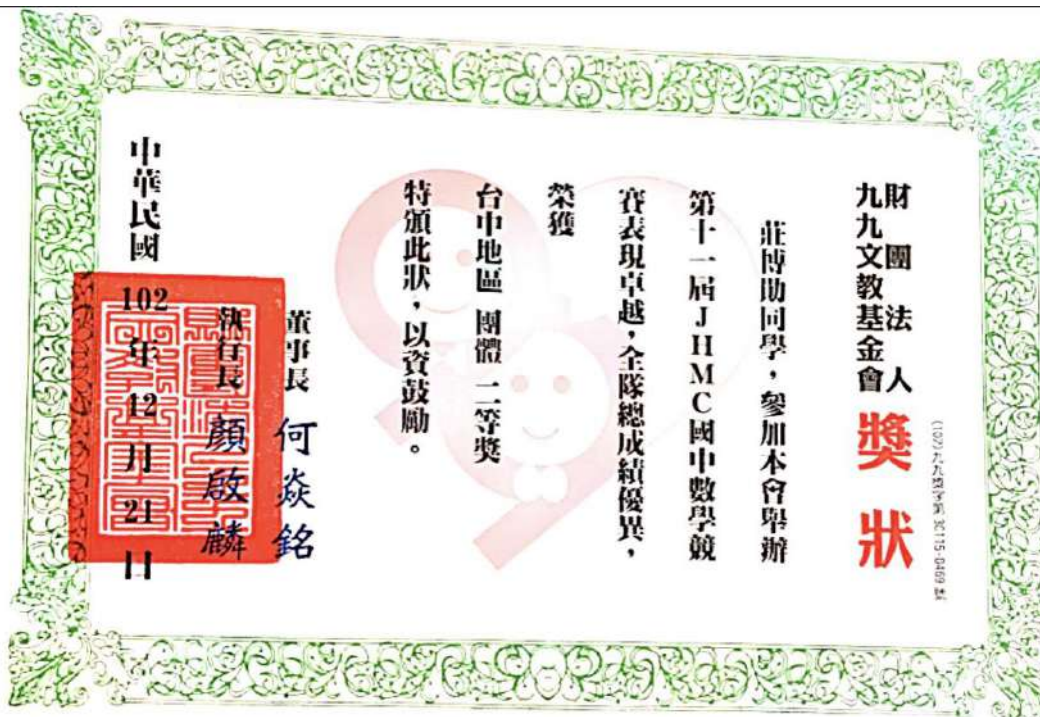 財團法人
九九文教基金會
獎狀
莊博勛同學,參加本會舉辦
第十一屆JHMC國中數學競
賽表現卓越,全隊總成績優異,
榮獲
台中地區 團體 二等獎
特頒此狀,以資鼓勵。
董事長 何焱銘
執行長 顏啟麟
中華民國 102 年 12 月 21 日